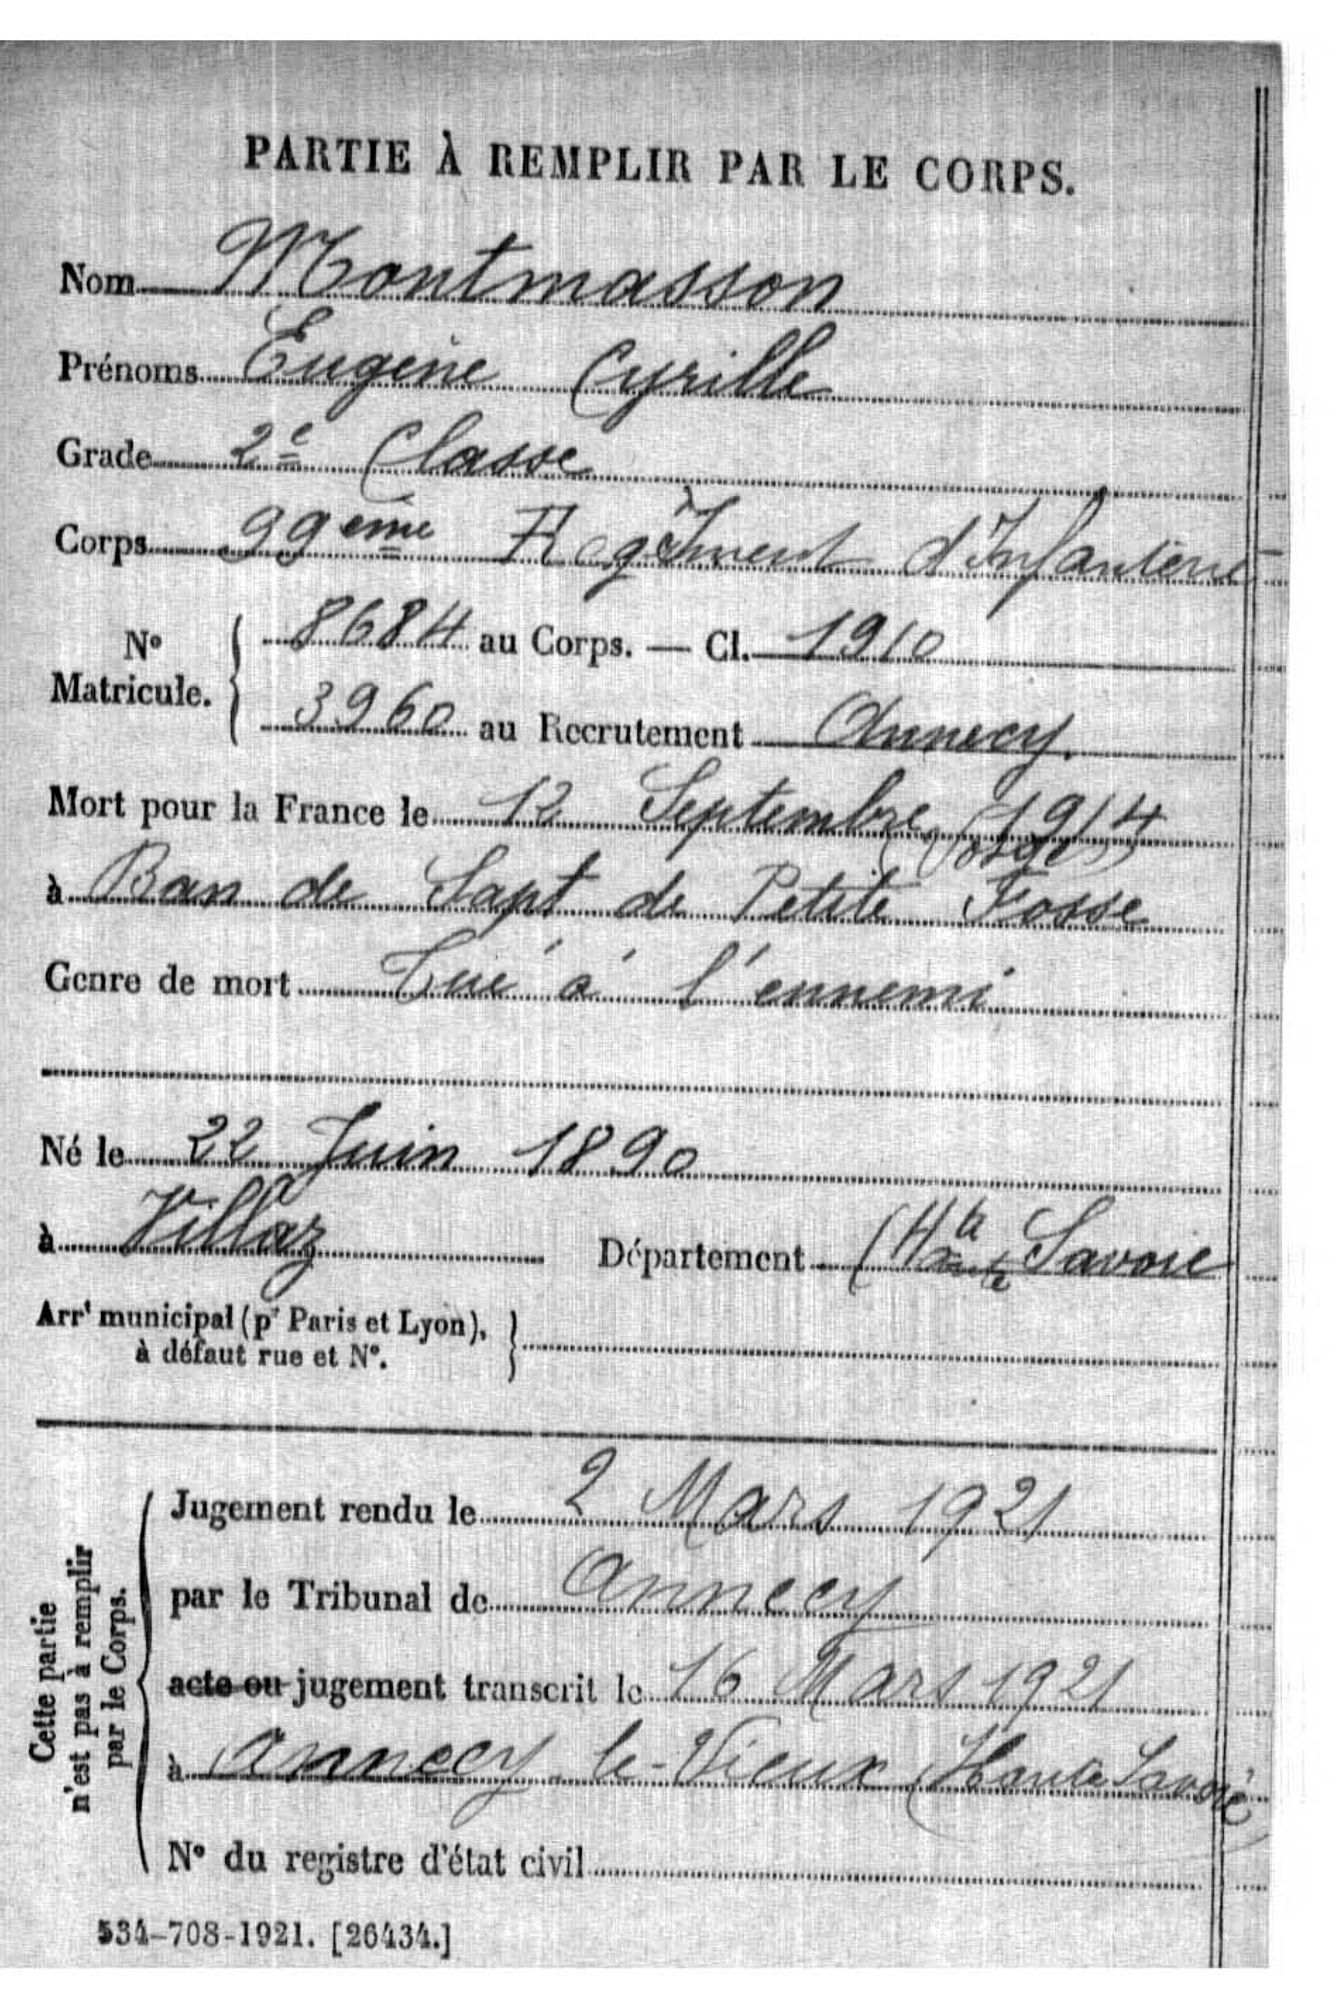 PARTIE À REMPLIR PAR LE CORPS.
Nom Montmasson
Prénoms Eugène Cyrille
Grade 2e Classe
Corps 99ème Régiment d'Infanterie
No Matricule. { 8684 au Corps. — Cl. 1910
3960 au Recrutement Annecy.
Mort pour la France le 12 Septembre 1914
(Vosges)
à Ban de Sapt de Petite Fosse
Genre de mort Tué à l'ennemi
Né le 22 Juin 1890
à Villaz Département (Hte Savoie
Arrt municipal (pr Paris et Lyon), }
à défaut rue et No.
Cette partie
n'est pas à remplir
par le Corps.
Jugement rendu le 2 Mars 1921
par le Tribunal de Annecy
acte ou jugement transcrit le 16 Mars 1921
à Annecy-le-Vieux (Haute Savoie)
No du registre d'état civil
534-708-1921. [26434.]